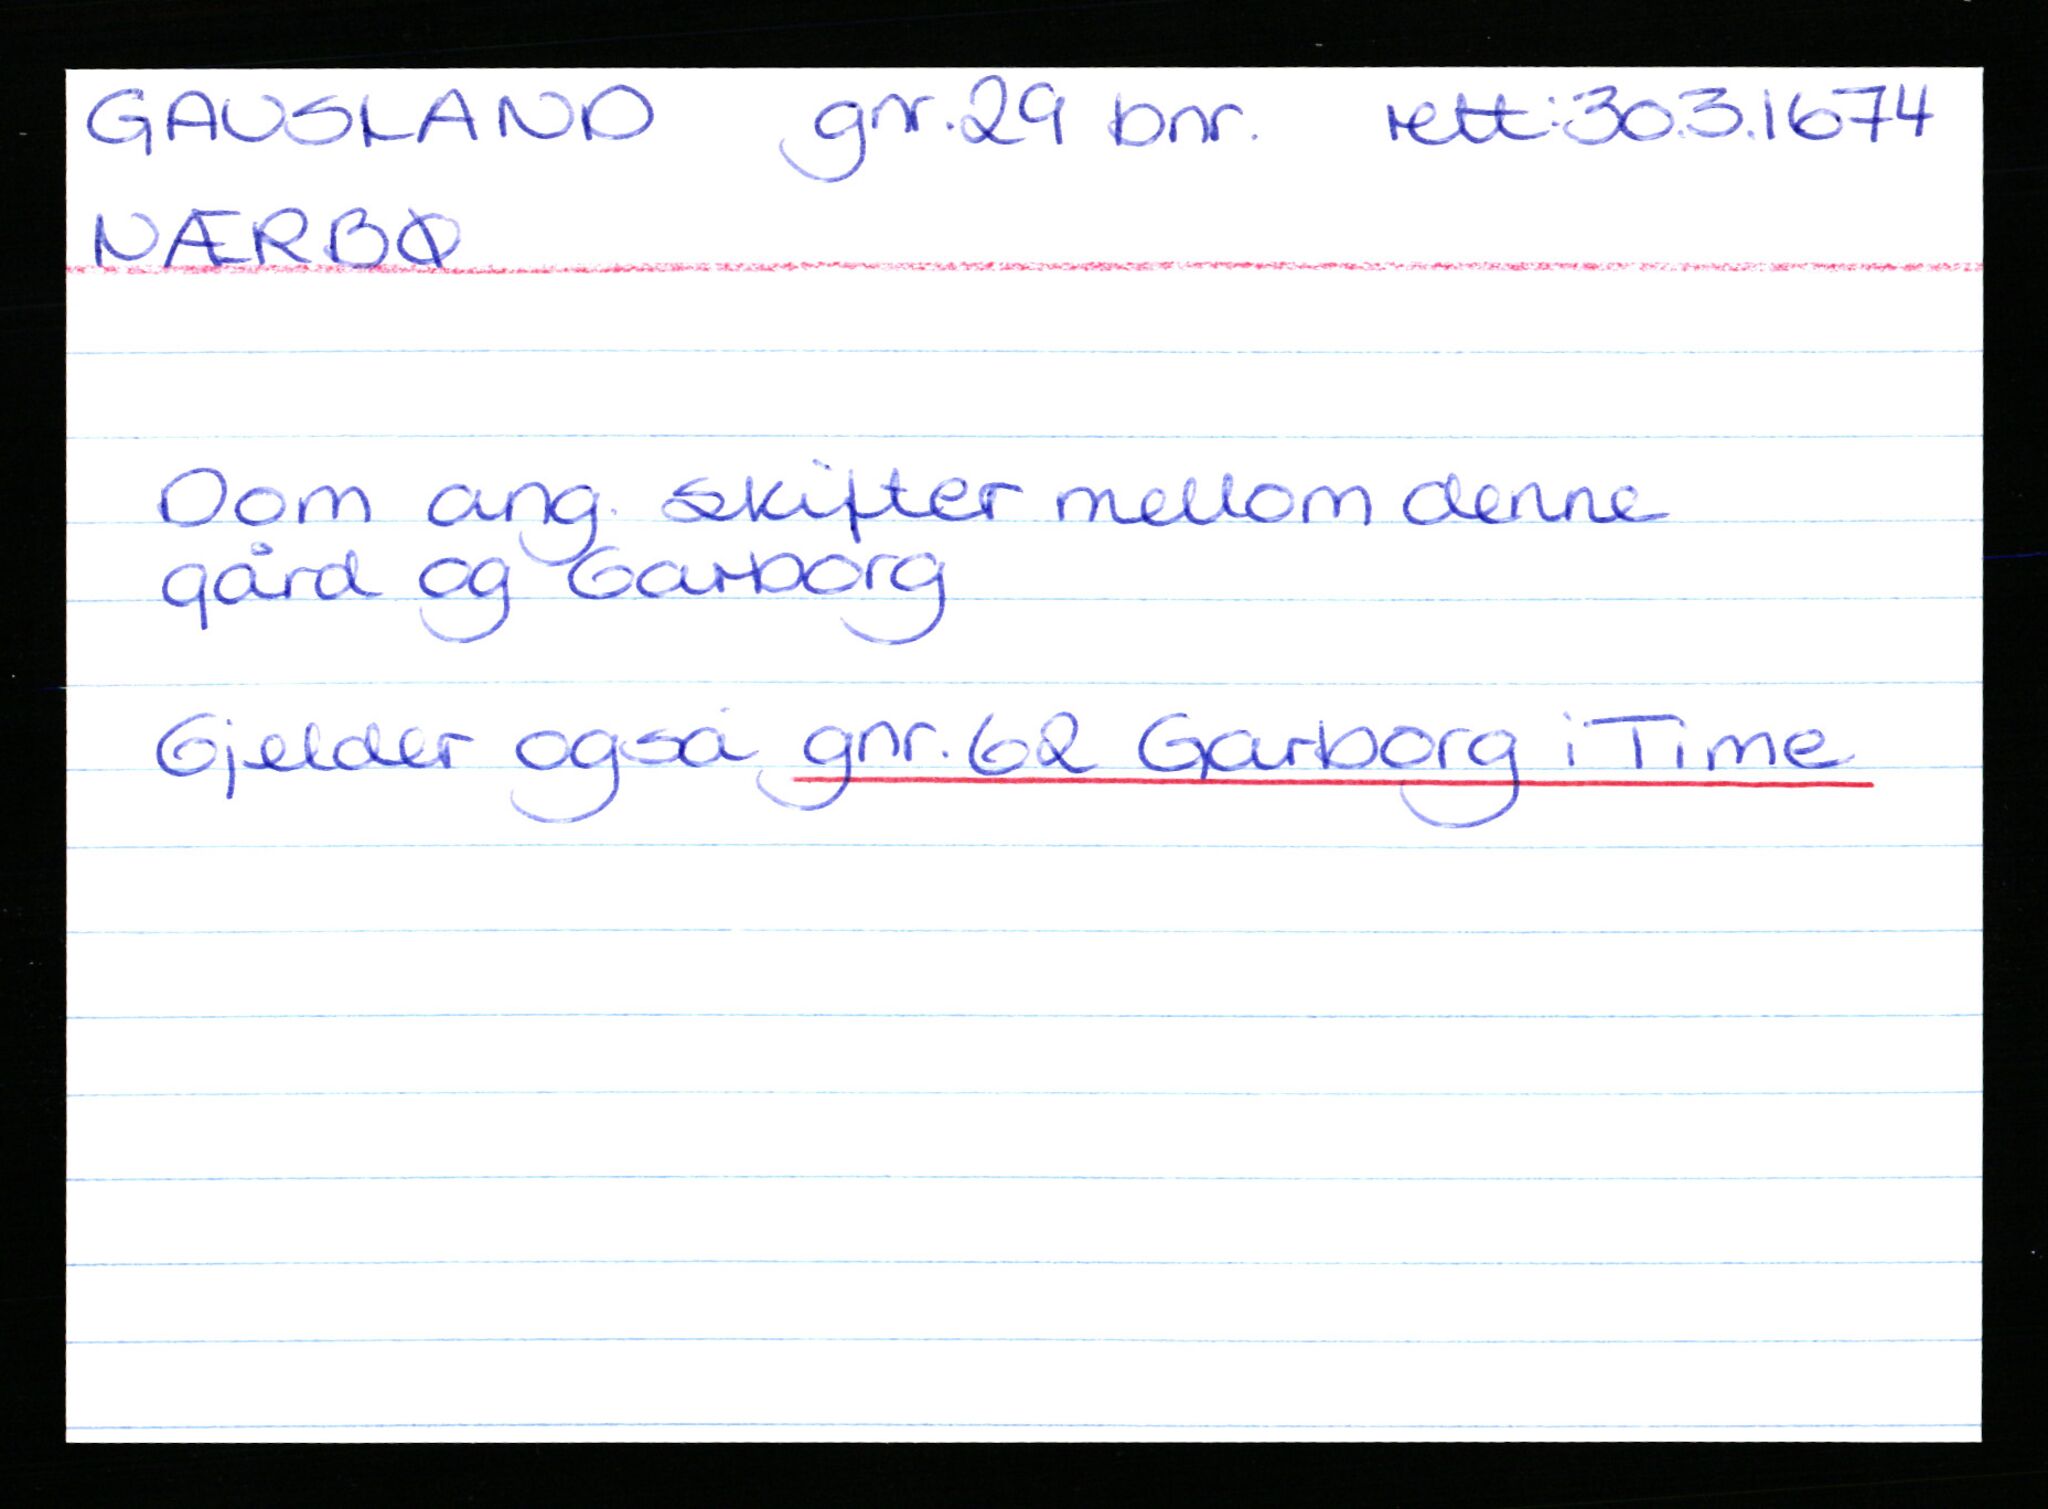 GAUSLAND gnr. 29 bnr. rett: 30.3.1674
NÆRBØ
Dom ang. skifter mellom denne
gård og Garborg
Gjelder også gnr. 62 Garborg i Time